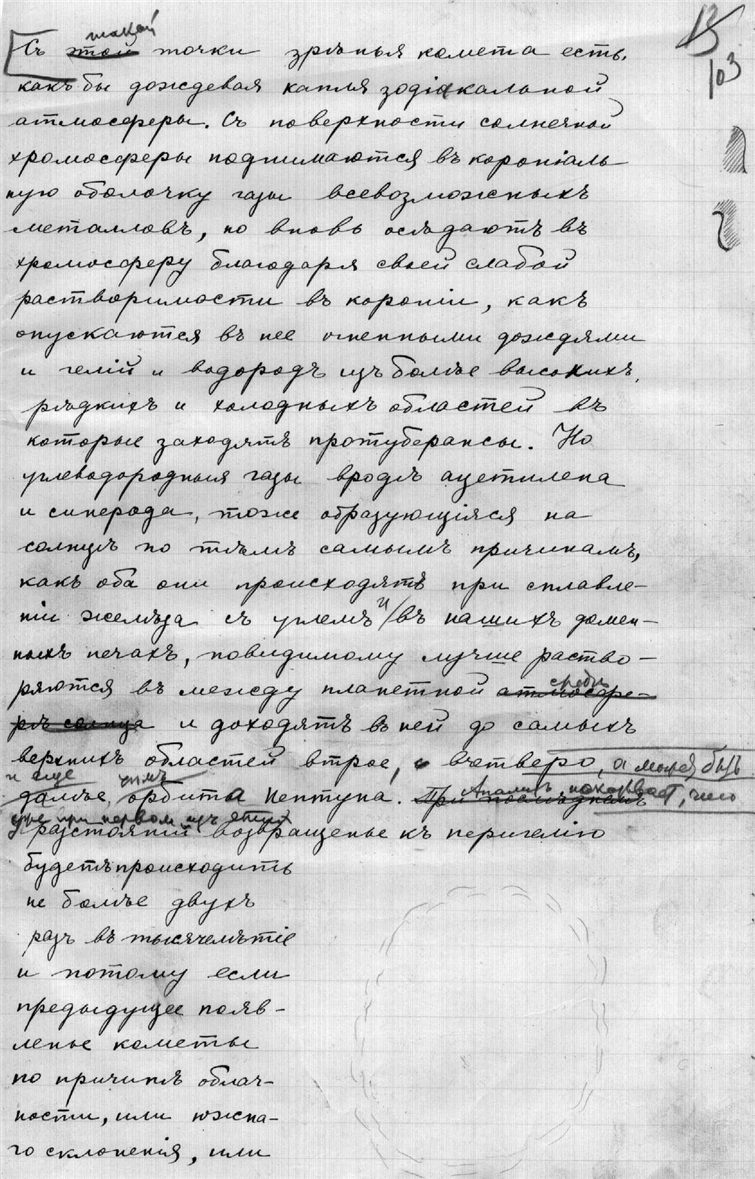 13
103
такой
Съ этой точки зрѣнья комета есть
какъ бы дождевая капля зодіакальной
атмосферы. Съ поверхности солнечной
хромосферы поднимаются въ короніаль
ную оболочку газы всевозможныхъ
металловъ, но вновь осѣдаютъ въ
хромосферу благодаря своей слабой
растворимости въ короніи, какъ
опускаются въ нее огненными дождями
и гелій и водородъ изъ болѣе высокихъ,
рѣдкихъ и холодныхъ областей въ
которые заходятъ протуберансы. Но
углеводородныя газы вродѣ ацетилена
и синерода, тоже образующіяся на
солнцѣ по тѣмъ самымъ причинамъ,
какъ оба они происходятъ при сплавле-
ніи желѣза съ углемъ и въ нашихъ домен-
ныхъ печахъ, повидимому лучше раство-
средѣ
ряются въ между планетной атмосфе-
рѣ солнца и доходятъ въ ней до самыхъ
верхнихъ областей втрое, вчетверо, а может быть
и еще чѣмъ
далѣе, орбита Нептуна. При Анализъ показывает, что
уже при первом изъ этихъ
разстояній возвращенье къ перигелію
будетъ происходить
не болѣе двухъ
разъ въ тысячелѣтіе
и потому если
предыдущее появ-
ленье кометы
по причинѣ облач-
ности, или южна-
го склоненія, или